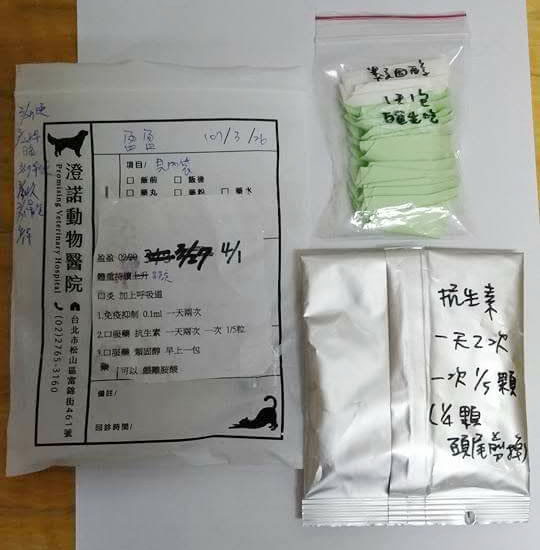 澄諾動物醫院
Promising Veterinary Hospital
台北市松山區富錦街461號
(02)2765-3160
盈盈 107/3/26
項目/ 見內袋
□ 飯前 □ 飯後
□ 藥丸 □ 藥粉 □ 藥水
盈盈 3/27 4/1
體重持續上升
口炎 加上呼吸道
1.免疫抑制 0.1ml 一天兩次
2.口服藥 抗生素 一天兩次 一次 1/5粒
3.口服藥 類固醇 早上一包
可以 離胺酸
備註/
回診時間/
類固醇
1天1包
早上吃
抗生素
一天2次
一次 1/5 顆
(1/4顆
頭尾剪掉)